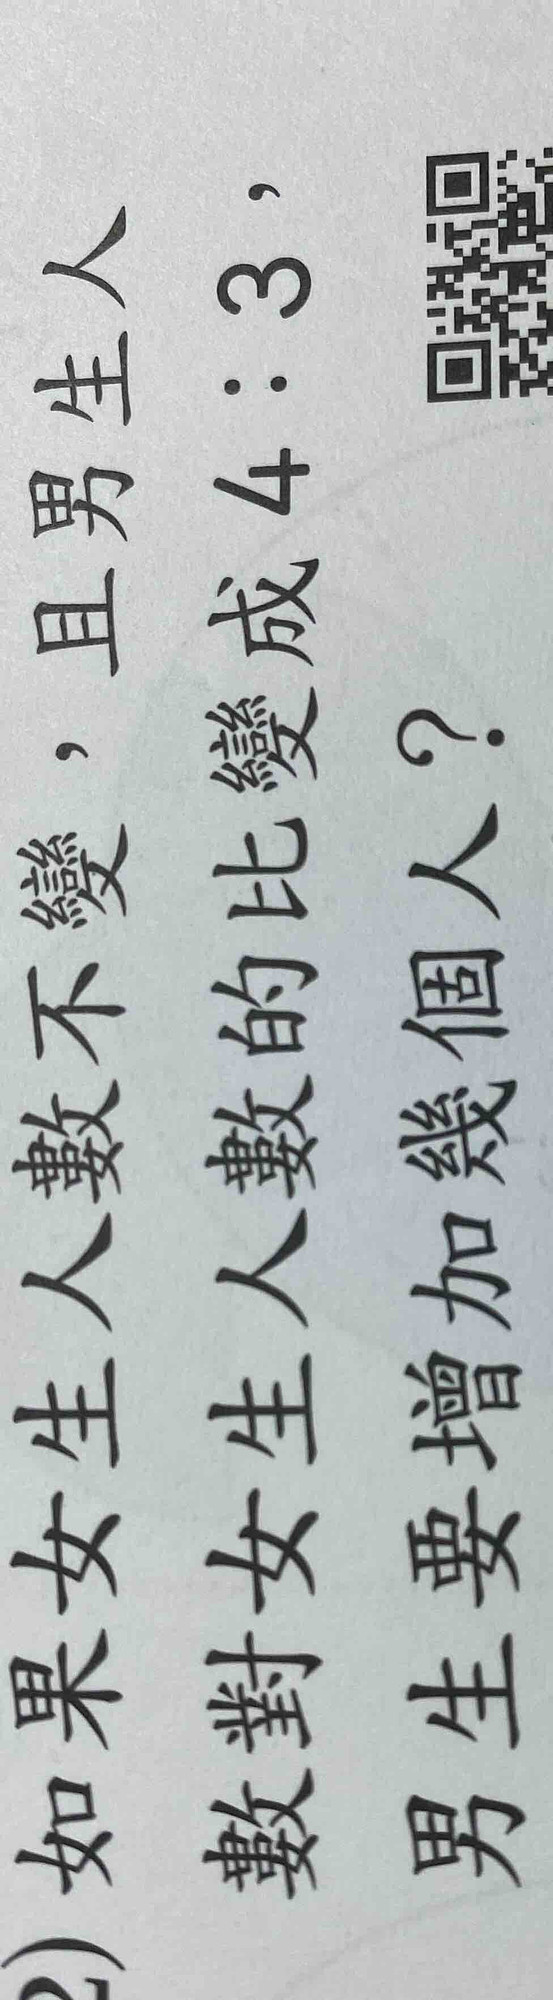 2) 如果女生人數不變,且男生人
數對女生人數的比變成4:3,
男生要增加幾個人?